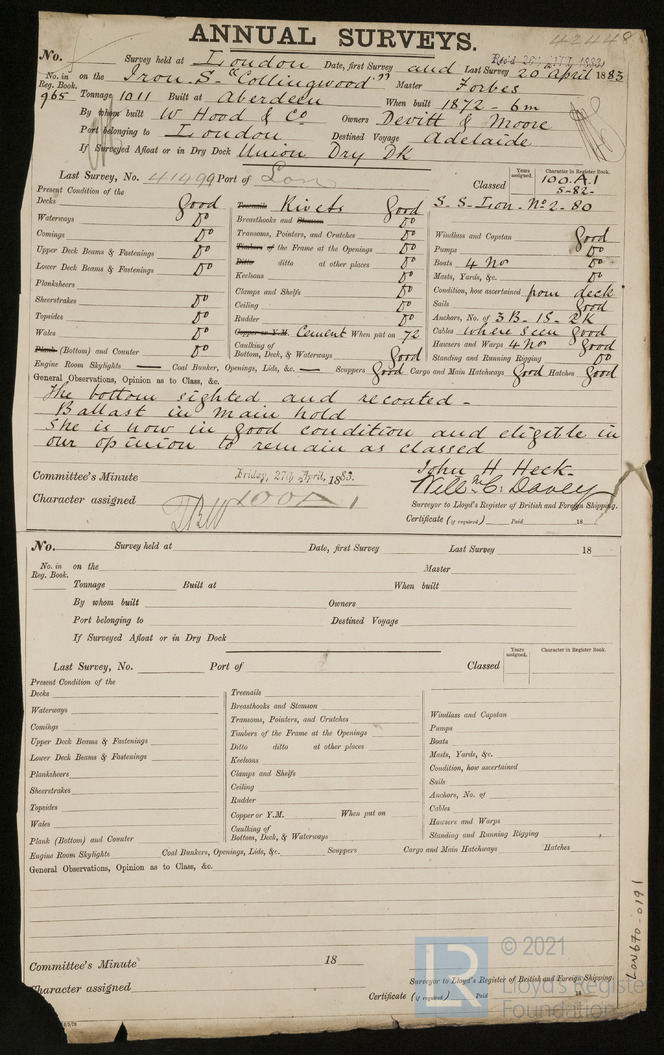 42448
ANNUAL SURVEYS.
Rec'd 26 APRIL 1883
No. Survey held at London Date, first Survey and Last Survey 20 April 1883
No. in Reg. Book. on the Iron S. "Collingwood" Master Forbes
965 Tonnage 1011 Built at Aberdeen When built 1872 - 6m
By whom built W Hood & Co Owners Devitt & Moore
Port belonging to London Destined Voyage Adelaide
If Surveyed Afloat or in Dry Dock Union Dry Dk
Last Survey, No. 41499 Port of Lon Classed Years assigned. Character in Register Book. 100.A.1
5-82-
S. S. Iron - No 2 - 80
Present Condition of the
Decks Good
Waterways Do
Comings Do
Upper Deck Beams & Fastenings Do
Lower Deck Beams & Fastenings Do
Planksheers
Sheerstrakes Do
Topsides Do
Wales Do
Plank (Bottom) and Counter Do
Treenails Rivets Good
Breasthooks and Stemson Do
Transoms, Pointers, and Crutches Do
Timbers of the Frame at the Openings Do
Ditto ditto at other places Do
Keelsons Do
Clamps and Shelfs Do
Ceiling Do
Rudder Do
Copper or Y.M. Cement When put on 72
Caulking of
Bottom, Deck, & Waterways Good
Windlass and Capstan Good
Pumps Do
Boats 4 No Do
Masts, Yards, &c. Do
Condition, how ascertained from deck
Sails Good
Anchors, No. of 3B - 1S - 2K
Cables where seen Good
Hawsers and Warps 4 No Good
Standing and Running Rigging Do
Engine Room Skylights — Coal Bunker, Openings, Lids, &c. — Scuppers Good Cargo and Main Hatchways Good Hatches Good
General Observations, Opinion as to Class, &c.
The bottom sighted and recoated -
Ballast in main hold
She is now in good condition and eligible in
our opinion to remain as classed
John H Heck
Will m C. Davey
Committee's Minute Friday, 27th April, 1883.
Character assigned 100A1
Surveyor to Lloyd's Register of British and Foreign Shipping.
Certificate (if required) Paid 18
No. Survey held at Date, first Survey Last Survey 18
No. in Reg. Book. on the Master
Tonnage Built at When built
By whom built Owners
Port belonging to Destined Voyage
If Surveyed Afloat or in Dry Dock
Last Survey, No. Port of Classed Years assigned. Character in Register Book.
Present Condition of the
Decks
Waterways
Comings
Upper Deck Beams & Fastenings
Lower Deck Beams & Fastenings
Planksheers
Sheerstrakes
Topsides
Wales
Plank (Bottom) and Counter
Treenails
Breasthooks and Stemson
Transoms, Pointers, and Crutches
Timbers of the Frame at the Openings
Ditto ditto at other places
Keelsons
Clamps and Shelfs
Ceiling
Rudder
Copper or Y.M. When put on
Caulking of
Bottom, Deck, & Waterways
Windlass and Capstan
Pumps
Boats
Masts, Yards, &c.
Condition, how ascertained
Sails
Anchors, No. of
Cables
Hawsers and Warps
Standing and Running Rigging
Engine Room Skylights Coal Bunkers, Openings, Lids, &c. Scuppers Cargo and Main Hatchways Hatches
General Observations, Opinion as to Class, &c.
Committee's Minute 18
Character assigned
Surveyor to Lloyd's Register of British and Foreign Shipping.
Certificate (if required) Paid 18
LON670-0191
LR
© 2021
Lloyd's Register
Foundation